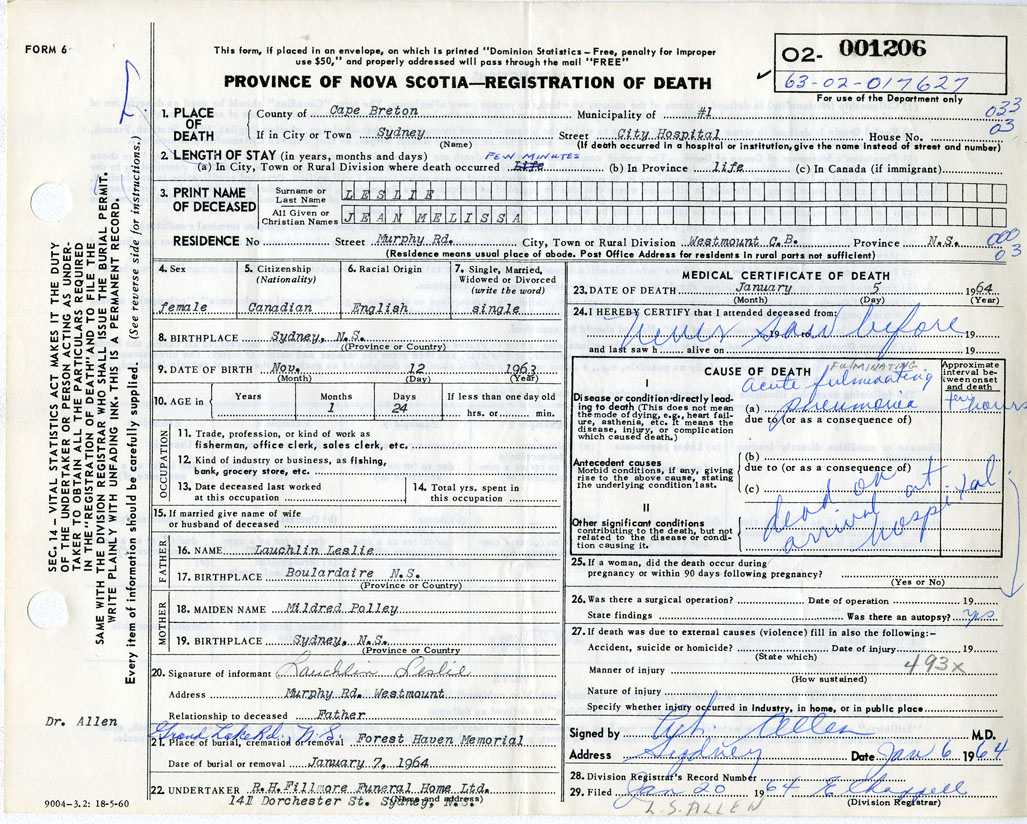 FORM 6
This form, if placed in an envelope, on which is printed "Dominion Statistics – Free, penalty for improper
use $50," and properly addressed will pass through the mail "FREE"
PROVINCE OF NOVA SCOTIA—REGISTRATION OF DEATH
02- 001206
63-02-017627
For use of the Department only
033
03
1. PLACE OF DEATH
County of Cape Breton Municipality of #1
If in City or Town Sydney Street City Hospital House No.
(Name) (If death occurred in a hospital or institution, give the name instead of street and number)
2. LENGTH OF STAY (in years, months and days) FEW MINUTES
(a) In City, Town or Rural Division where death occurred Life (b) In Province life (c) In Canada (if immigrant)
3. PRINT NAME OF DECEASED
Surname or Last Name LESLIE
All Given or Christian Names JEAN MELISSA
RESIDENCE No Street Murphy Rd. City, Town or Rural Division Westmount C.B. Province N.S.
000
03
(Residence means usual place of abode. Post Office Address for residents in rural parts not sufficient)
4. Sex
female
5. Citizenship
(Nationality)
Canadian
6. Racial Origin
English
7. Single, Married,
Widowed or Divorced
(write the word)
single
8. BIRTHPLACE Sydney, N.S.
(Province or Country)
9. DATE OF BIRTH Nov. 12 1963
(Month) (Day) (Year)
10. AGE in
Years Months Days If less than one day old
1 24 hrs. or min.
OCCUPATION
11. Trade, profession, or kind of work as
fisherman, office clerk, sales clerk, etc.
12. Kind of industry or business, as fishing,
bank, grocery store, etc.
13. Date deceased last worked
at this occupation
14. Total yrs. spent in
this occupation
15. If married give name of wife
or husband of deceased
FATHER
16. NAME Lauchlin Leslie
17. BIRTHPLACE Boulardaire N.S.
(Province or Country)
MOTHER
18. MAIDEN NAME Mildred Polley
19. BIRTHPLACE Sydney, N.S.
(Province or Country
20. Signature of informant Lauchlin Leslie
Address Murphy Rd. Westmount
Relationship to deceased Father
Grand Lake Rd., N.S.
21. Place of burial, cremation or removal Forest Haven Memorial
Date of burial or removal January 7, 1964
22. UNDERTAKER R.H. Fillmore Funeral Home Ltd.
(Name and address)
141 Dorchester St. Sydney, N.S.
MEDICAL CERTIFICATE OF DEATH
23. DATE OF DEATH January 5 1964
(Month) (Day) (Year)
24. I HEREBY CERTIFY that I attended deceased from:
never saw before
19 to 19
and last saw h alive on 19
CAUSE OF DEATH
FULMINATING
Approximate
interval be-
tween onset
and death
I
Disease or condition directly lead-
ing to death (This does not mean
the mode of dying, e.g., heart fail-
ure, asthenia, etc. It means the
disease, injury, or complication
which caused death.)
Acute fulminating
(a) pneumonia
few hours
due to (or as a consequence of)
(b)
Antecedent causes
Morbid conditions, if any, giving
rise to the above cause, stating
the underlying condition last.
due to (or as a consequence of)
(c)
dead on
arrival at
hospital
II
Other significant conditions
contributing to the death, but not
related to the disease or condi-
tion causing it.
25. If a woman, did the death occur during
pregnancy or within 90 days following pregnancy?
(Yes or No)
26. Was there a surgical operation? Date of operation 19
State findings Was there an autopsy? yes
27. If death was due to external causes (violence) fill in also the following:–
Accident, suicide or homicide? Date of injury 19
(State which)
493x
Manner of injury
(How sustained)
Nature of injury
Specify whether injury occurred in industry, in home, or in public place
Signed by Allen M.D.
Address Sydney Date Jan 6 1964
28. Division Registrar's Record Number
29. Filed Jan 20 1964 E Chappell
(Division Registrar)
L.S. ALLEN
SEC. 14 – VITAL STATISTICS ACT MAKES IT THE DUTY
OF THE UNDERTAKER OR PERSON ACTING AS UNDER-
TAKER TO OBTAIN ALL THE PARTICULARS REQUIRED
IN THE "REGISTRATION OF DEATH" AND TO FILE THE
SAME WITH THE DIVISION REGISTRAR WHO SHALL ISSUE THE BURIAL PERMIT.
WRITE PLAINLY WITH UNFADING INK. THIS IS A PERMANENT RECORD.
Every item of information should be carefully supplied. (See reverse side for instructions.)
Dr. Allen
9004–3.2: 18-5-60